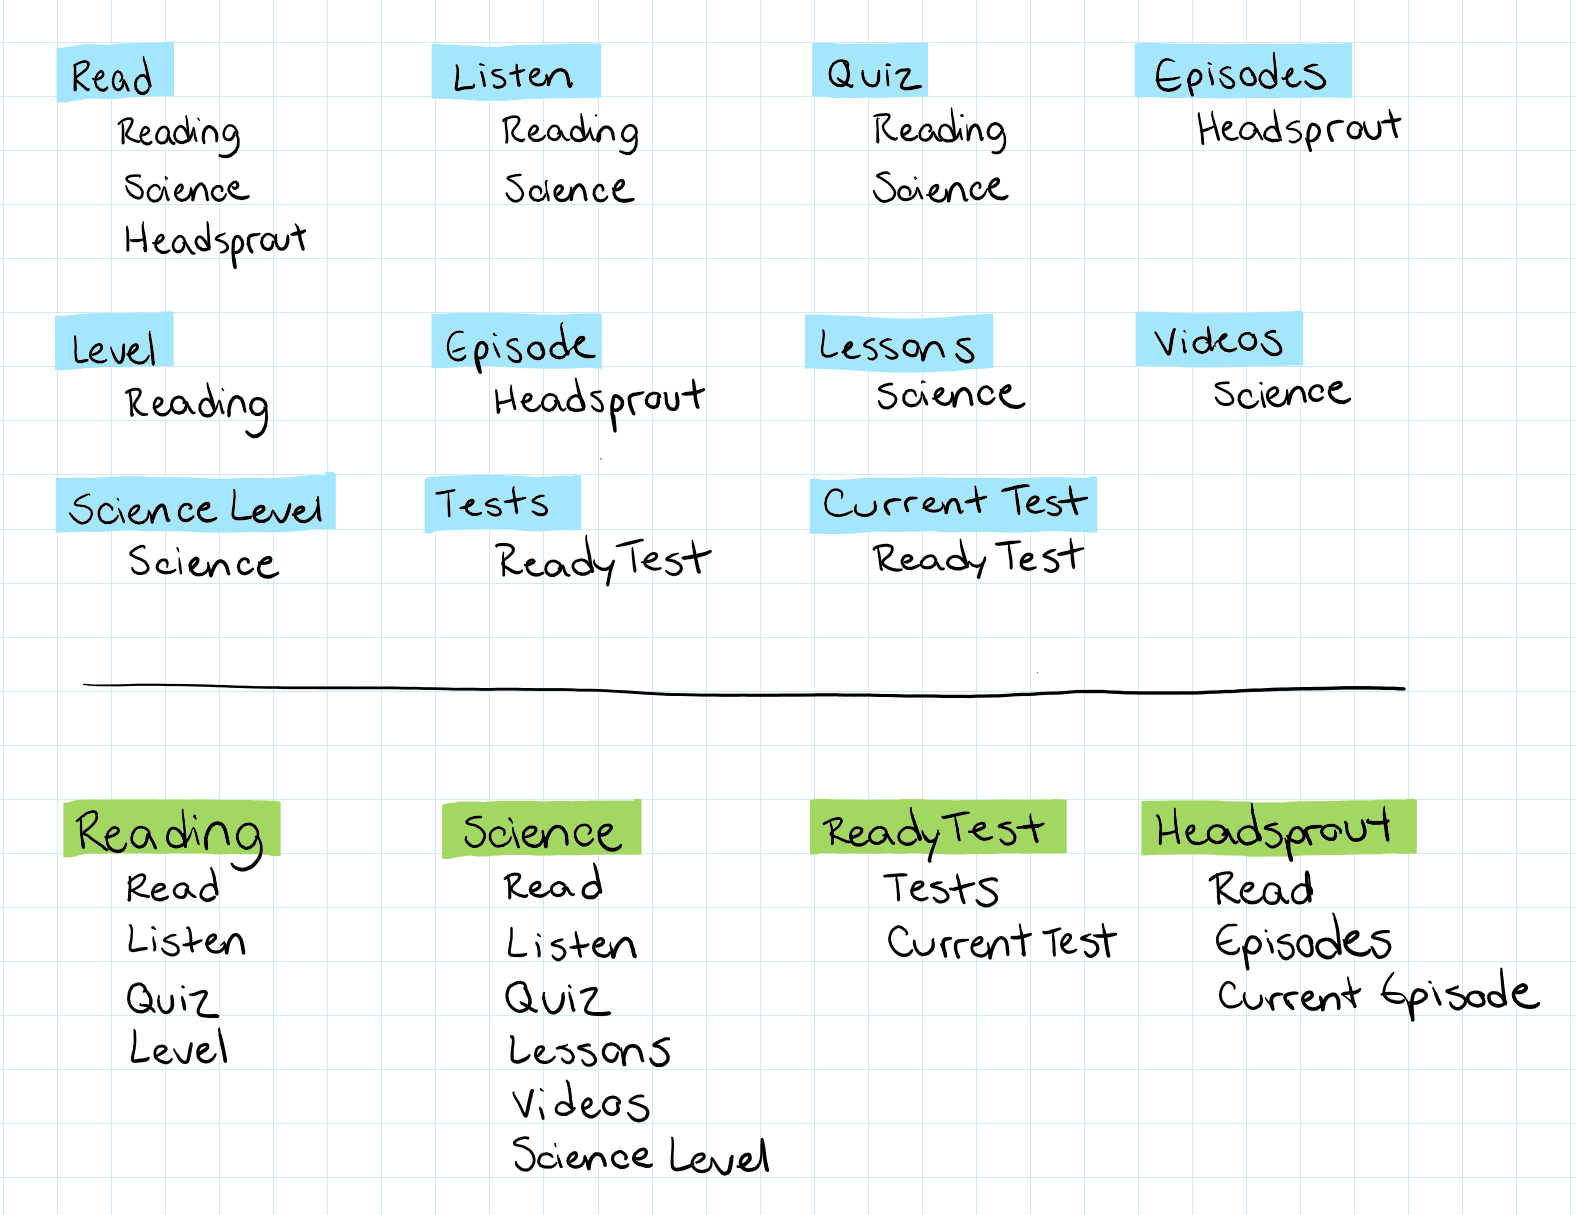 Read
Reading
Science
Headsprout
Listen
Reading
Science
Quiz
Reading
Science
Episodes
Headsprout
Level
Reading
Episode
Headsprout
Lessons
Science
Videos
Science
Science Level
Science
Tests
ReadyTest
Current Test
Ready Test
Reading
Read
Listen
Quiz
Level
Science
Read
Listen
Quiz
Lessons
Videos
Science Level
ReadyTest
Tests
Current Test
Headsprout
Read
Episodes
Current Episode